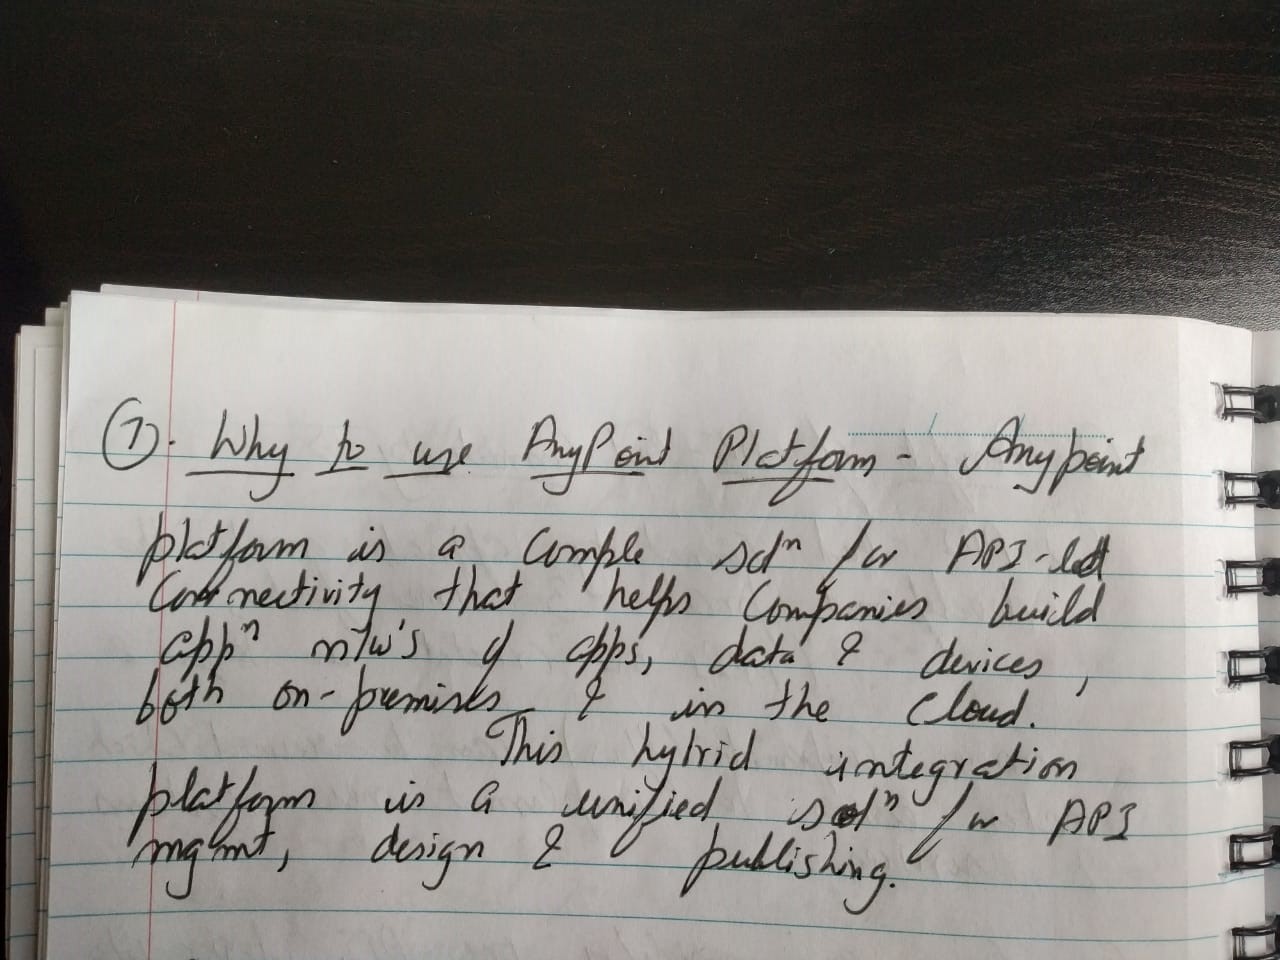 (7). Why to use AnyPoint Platform - Anypoint
platform is a comple solⁿ for API-led
Connectivity that helps Companies build
appⁿ n/w's of apps, data & devices,
both on-premises & in the Cloud.
This hybrid integration
platform is a unified solⁿ for API
mgmt, design & publishing.